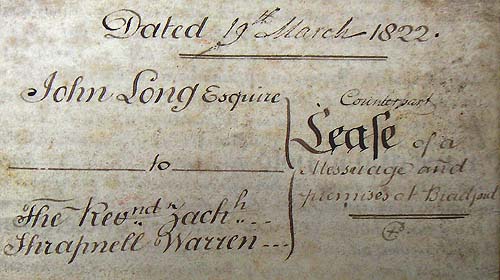 Dated 19th March 1822.
John Long Esquire
to
The Revnd Zachh
Shrapnell Warren
Counterpart
Lease of a
Messuage and
premises at